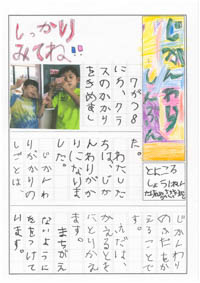 じかんわり
しんぶん
しっかり
みてね!!
7がつ8
にち、クラ
スのかかり
をきめまし
た。
わたした
ちは、じか
んわりがか
りになりま
した。
じかんわ
りがかりの
しごとは、
じかんわり
のふだをか
えることで
す。
ふだは、
かえるとき
にとりかえ
ます。
まちがえ
ないように
きをつけて
います。